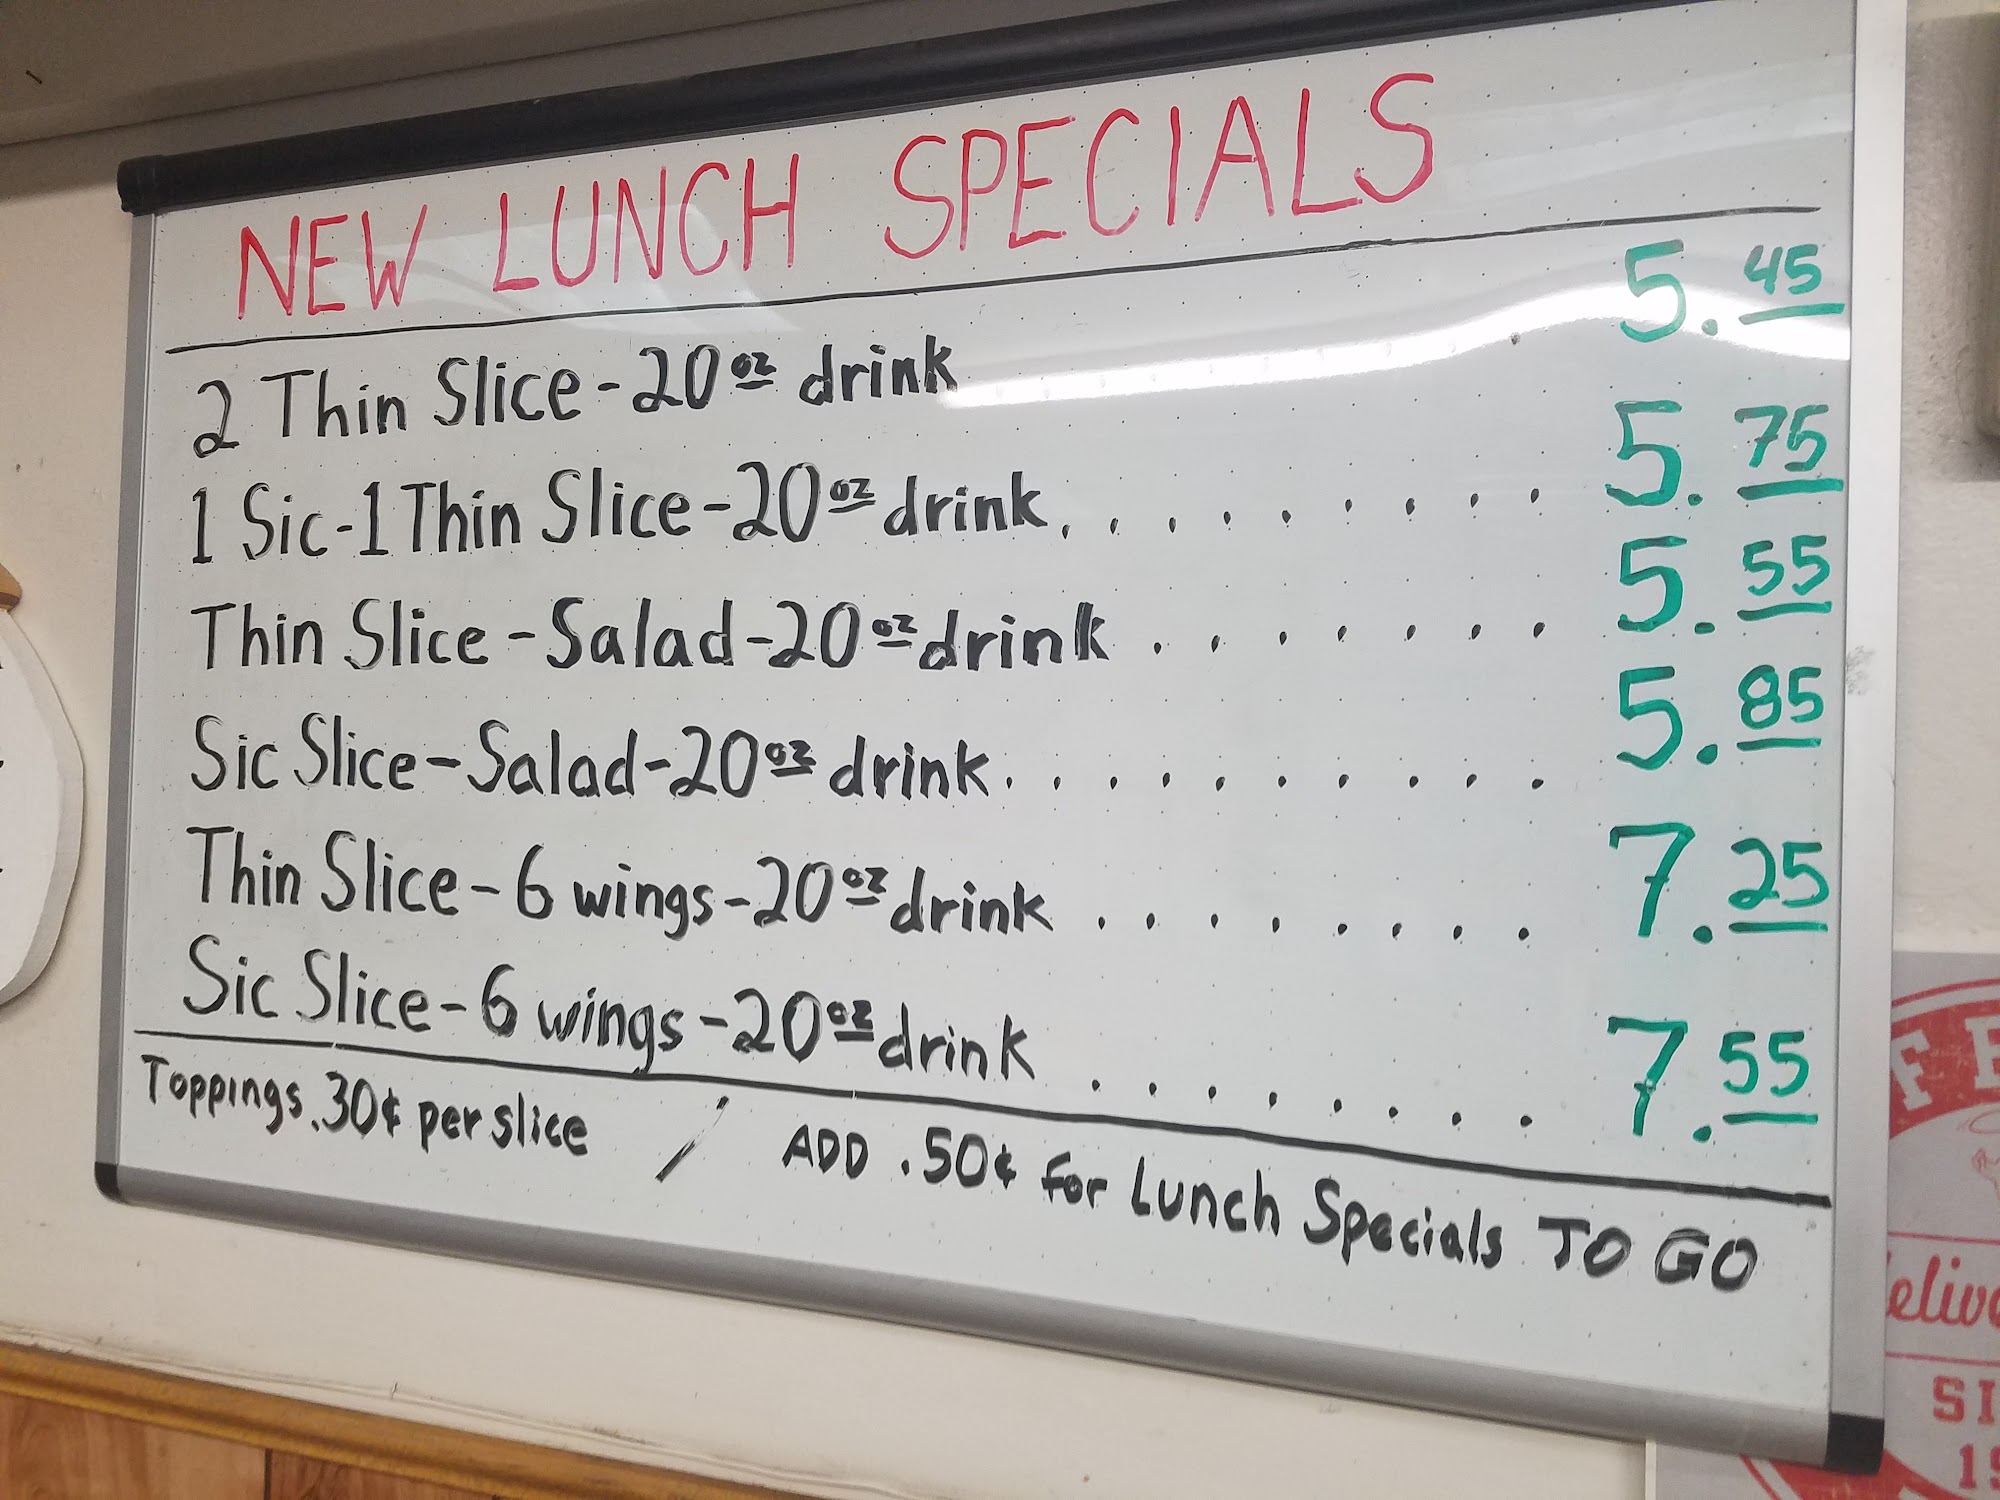 NEW LUNCH SPECIALS
2 Thin Slice - 20 oz drink 5.45
1 Sic - 1 Thin Slice - 20 oz drink . . . . . . . . . 5.75
Thin Slice - Salad - 20 oz drink . . . . . . . 5.55
Sic Slice - Salad - 20 oz drink . . . . . . . . . . 5.85
Thin Slice - 6 wings - 20 oz drink . . . . . . . . 7.25
Sic Slice - 6 wings - 20 oz drink . . . . . . . . 7.55
Toppings .30¢ per slice / ADD .50¢ for Lunch Specials TO GO